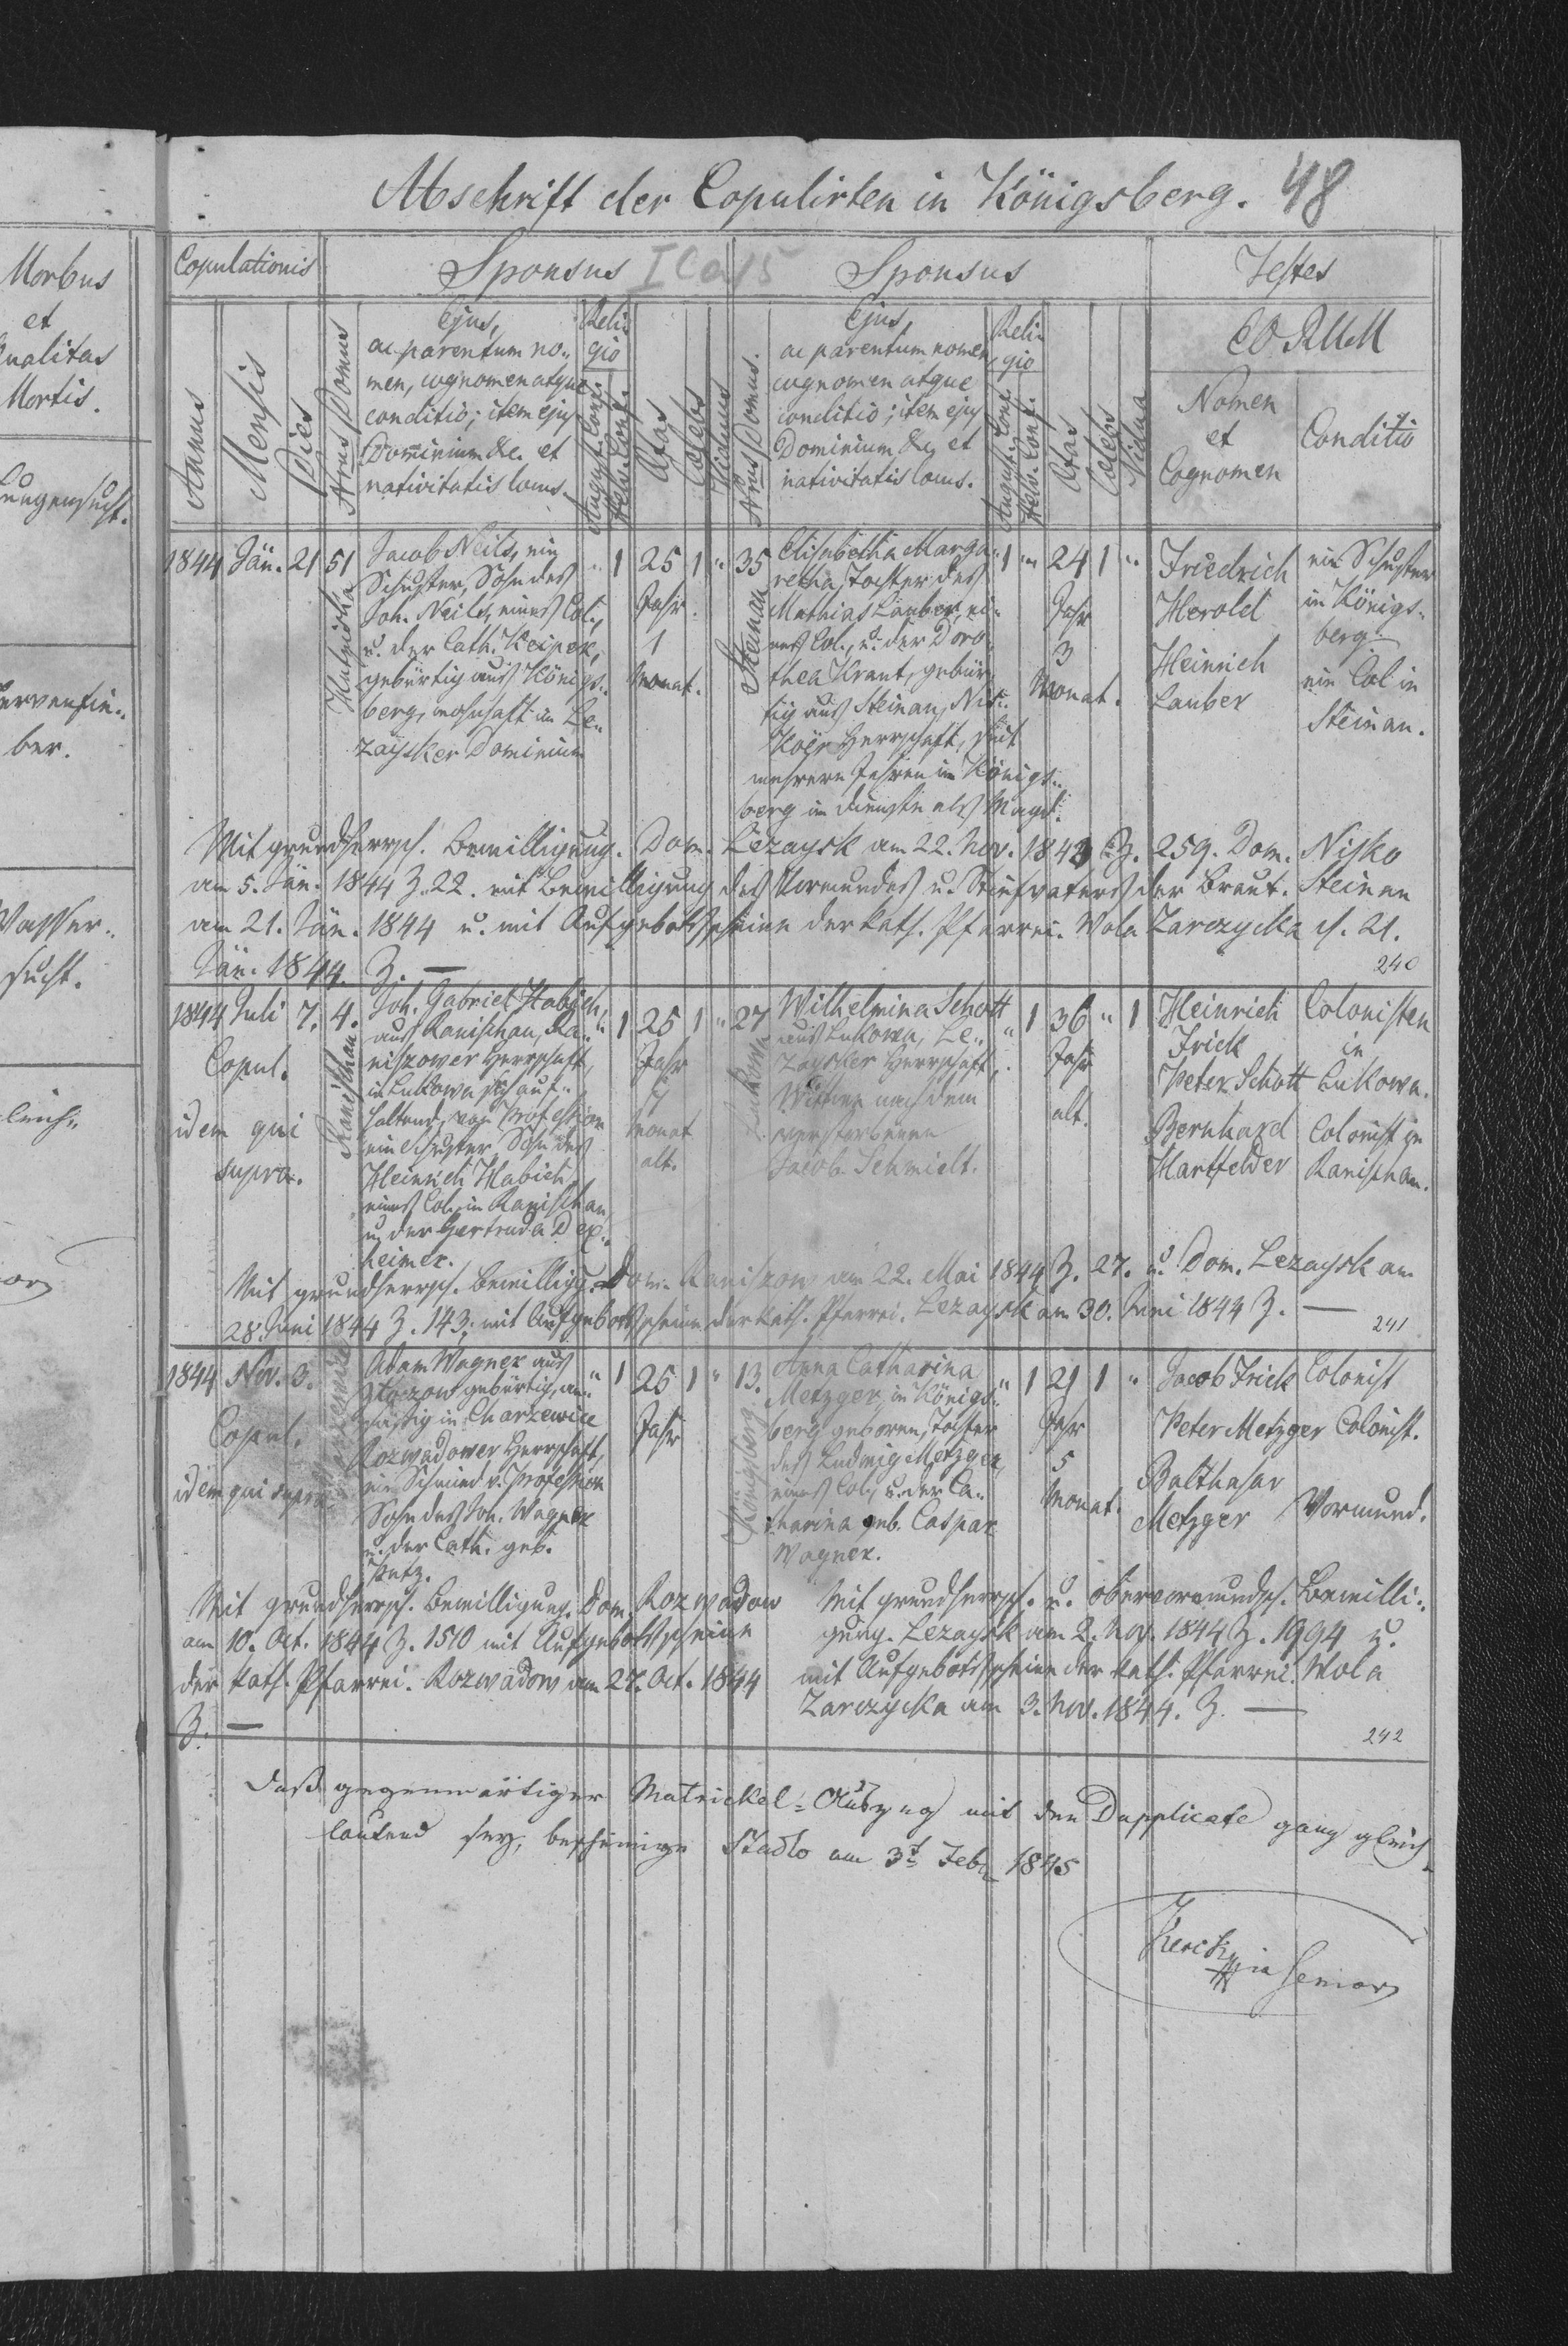 Abschrift der Copulirten in Königsberg. 48
Morbus
et
Qualitas
Mortis.
Lungensucht.
Nervenfie-
ber.
Wasser-
sucht.
Copulationis
Sponsus
Sponsus
Testes
EORUM
Annus
Mensis
Dies
Nrus Domus
Ejus,
ac parentum no-
men, cognomen atque
conditio; item ejus
Dominium &c. et
nativitatis locus.
Reli-
gio
August. Conf.
Helv. Conf.
Ætas
Cælebs
Viduus
Nrus Domus.
Ejus,
ac parentum nomen,
cognomen atque
conditio; item ejus
Dominium &c, et
nativitatis locus.
Reli-
gio
August. Conf.
Helv. Conf.
Ætas
Cælebs
Vidua
Nomen
et
Cognomen
Conditio
1844 Jän. 21 51
Jacob Neils, ein
Schuster, Sohn des
Joh. Neils, eines Col.,
u. der Cath. Keiper,
gebürtig aus Königs-
berg, wohnhaft im Le-
zaysker Dominium
" 1 25 1 "
Jahr.
1
Monat.
35
Steinau
Elisabetha Marga-
retha, Tochter des
Mathias Lauber, ei-
nes Col., u. der Doro-
thea Kraut, gebür-
tig aus Steinau, Nis-
koër Herrschaft, seit
mehrern Jahren in Königs-
berg im Dienste als Magd.
1 " 24 1 "
Jahr
3
Monat.
Friedrich
Herold
Heinrich
Lauber
ein Schuster
in Königs-
berg.
ein Col in
Steinau.
Mit grundherrsch. Bewilligung. Dom. Lezaysk am 22. Nov. 1843 Z. 259. Dom. Nisko
am 5. Jän. 1844 Z. 22. mit Bewilligung des Vormundes u. Stiefvaters der Braut. Steinau
am 21. Jän. 1844 u. mit Aufgebottsscheine der kath. Pfarrei. Wola Zarczycka d. 21.
Jän. 1844. Z. —
240
1844 Juli 7. 4.
Copul.
idem qui
supra.
Ranischau
Joh. Gabriel Habich,
aus Ranischau, Ra-
niszower Herrschaft,
in Lukowa sich auf-
haltend, von Profession
ein Schuster, Sohn des
Heinrich Habich,
eines Col. in Ranischau
u. der Gertruda Dex-
heimer.
" 1 25 1 "
Jahr
Monat
alt.
27
Lukowa
Wilhelmina Schott
aus Lukowa, Le-
zaysker Herrschaft,
Wittwe nach dem
verstorbenen
Jacob Schmidt.
" 1 36 " 1
Jahr
alt.
Heinrich
Frick
Peter Schott
Bernhard
Hartfelder
Colonisten
in
Lukowa.
Colonist in
Ranischau.
Mit grundherrsch. Bewilligg. Dom. Raniszow am 22. Mai 1844 Z. 27. u. Dom. Lezaysk am
28. Juni 1844 Z. 143; mit Aufgebottsscheine der kath. Pfarrei. Lezaysk am 30. Juni 1844 Z. —
241
1844 Nov. 3.
Copul.
idem qui supra
Adam Wagner aus
gebürtig, an-
sässig in Charzewice
Rozwadower Herrschaft,
ein Schmied v. Profession
Sohn des Joh. Wagner
u. der Cath. geb.
" 1 25 1 "
Jahr
13.
Königsberg.
Anna Catharina
Metzger, in Königs-
berg geboren, Tochter
des Ludwig Metzger,
eines Col., u. der Ca-
tharina geb. Caspar
Wagner.
" 1 21 1 "
Jahr
5
Monat.
Jacob Frick
Peter Metzger
Balthasar
Metzger
Colonist
Colonist.
Vormund.
Mit grundherrsch. Bewilligung. Dom. Rozwadow
am 10. Oct. 1844 Z. 1510 mit Aufgebottsscheine
der kath. Pfarrei. Rozwadow am 27. Oct. 1844
Z. —
Mit grundherrsch. u. obervormundsch. Bewilli-
gung. Lezaysk am 2. Nov. 1844 Z. 1994 u.
mit Aufgebottsscheine der kath. Pfarrei. Wola
Zarczycka am 3. Nov. 1844. Z. —
242
Daß gegenwärtiger Matrickel-Auszug mit dem Dupplicate ganz gleich-
lautend sey, bescheinige Stadlo am 3t Feb. 1845
Senior